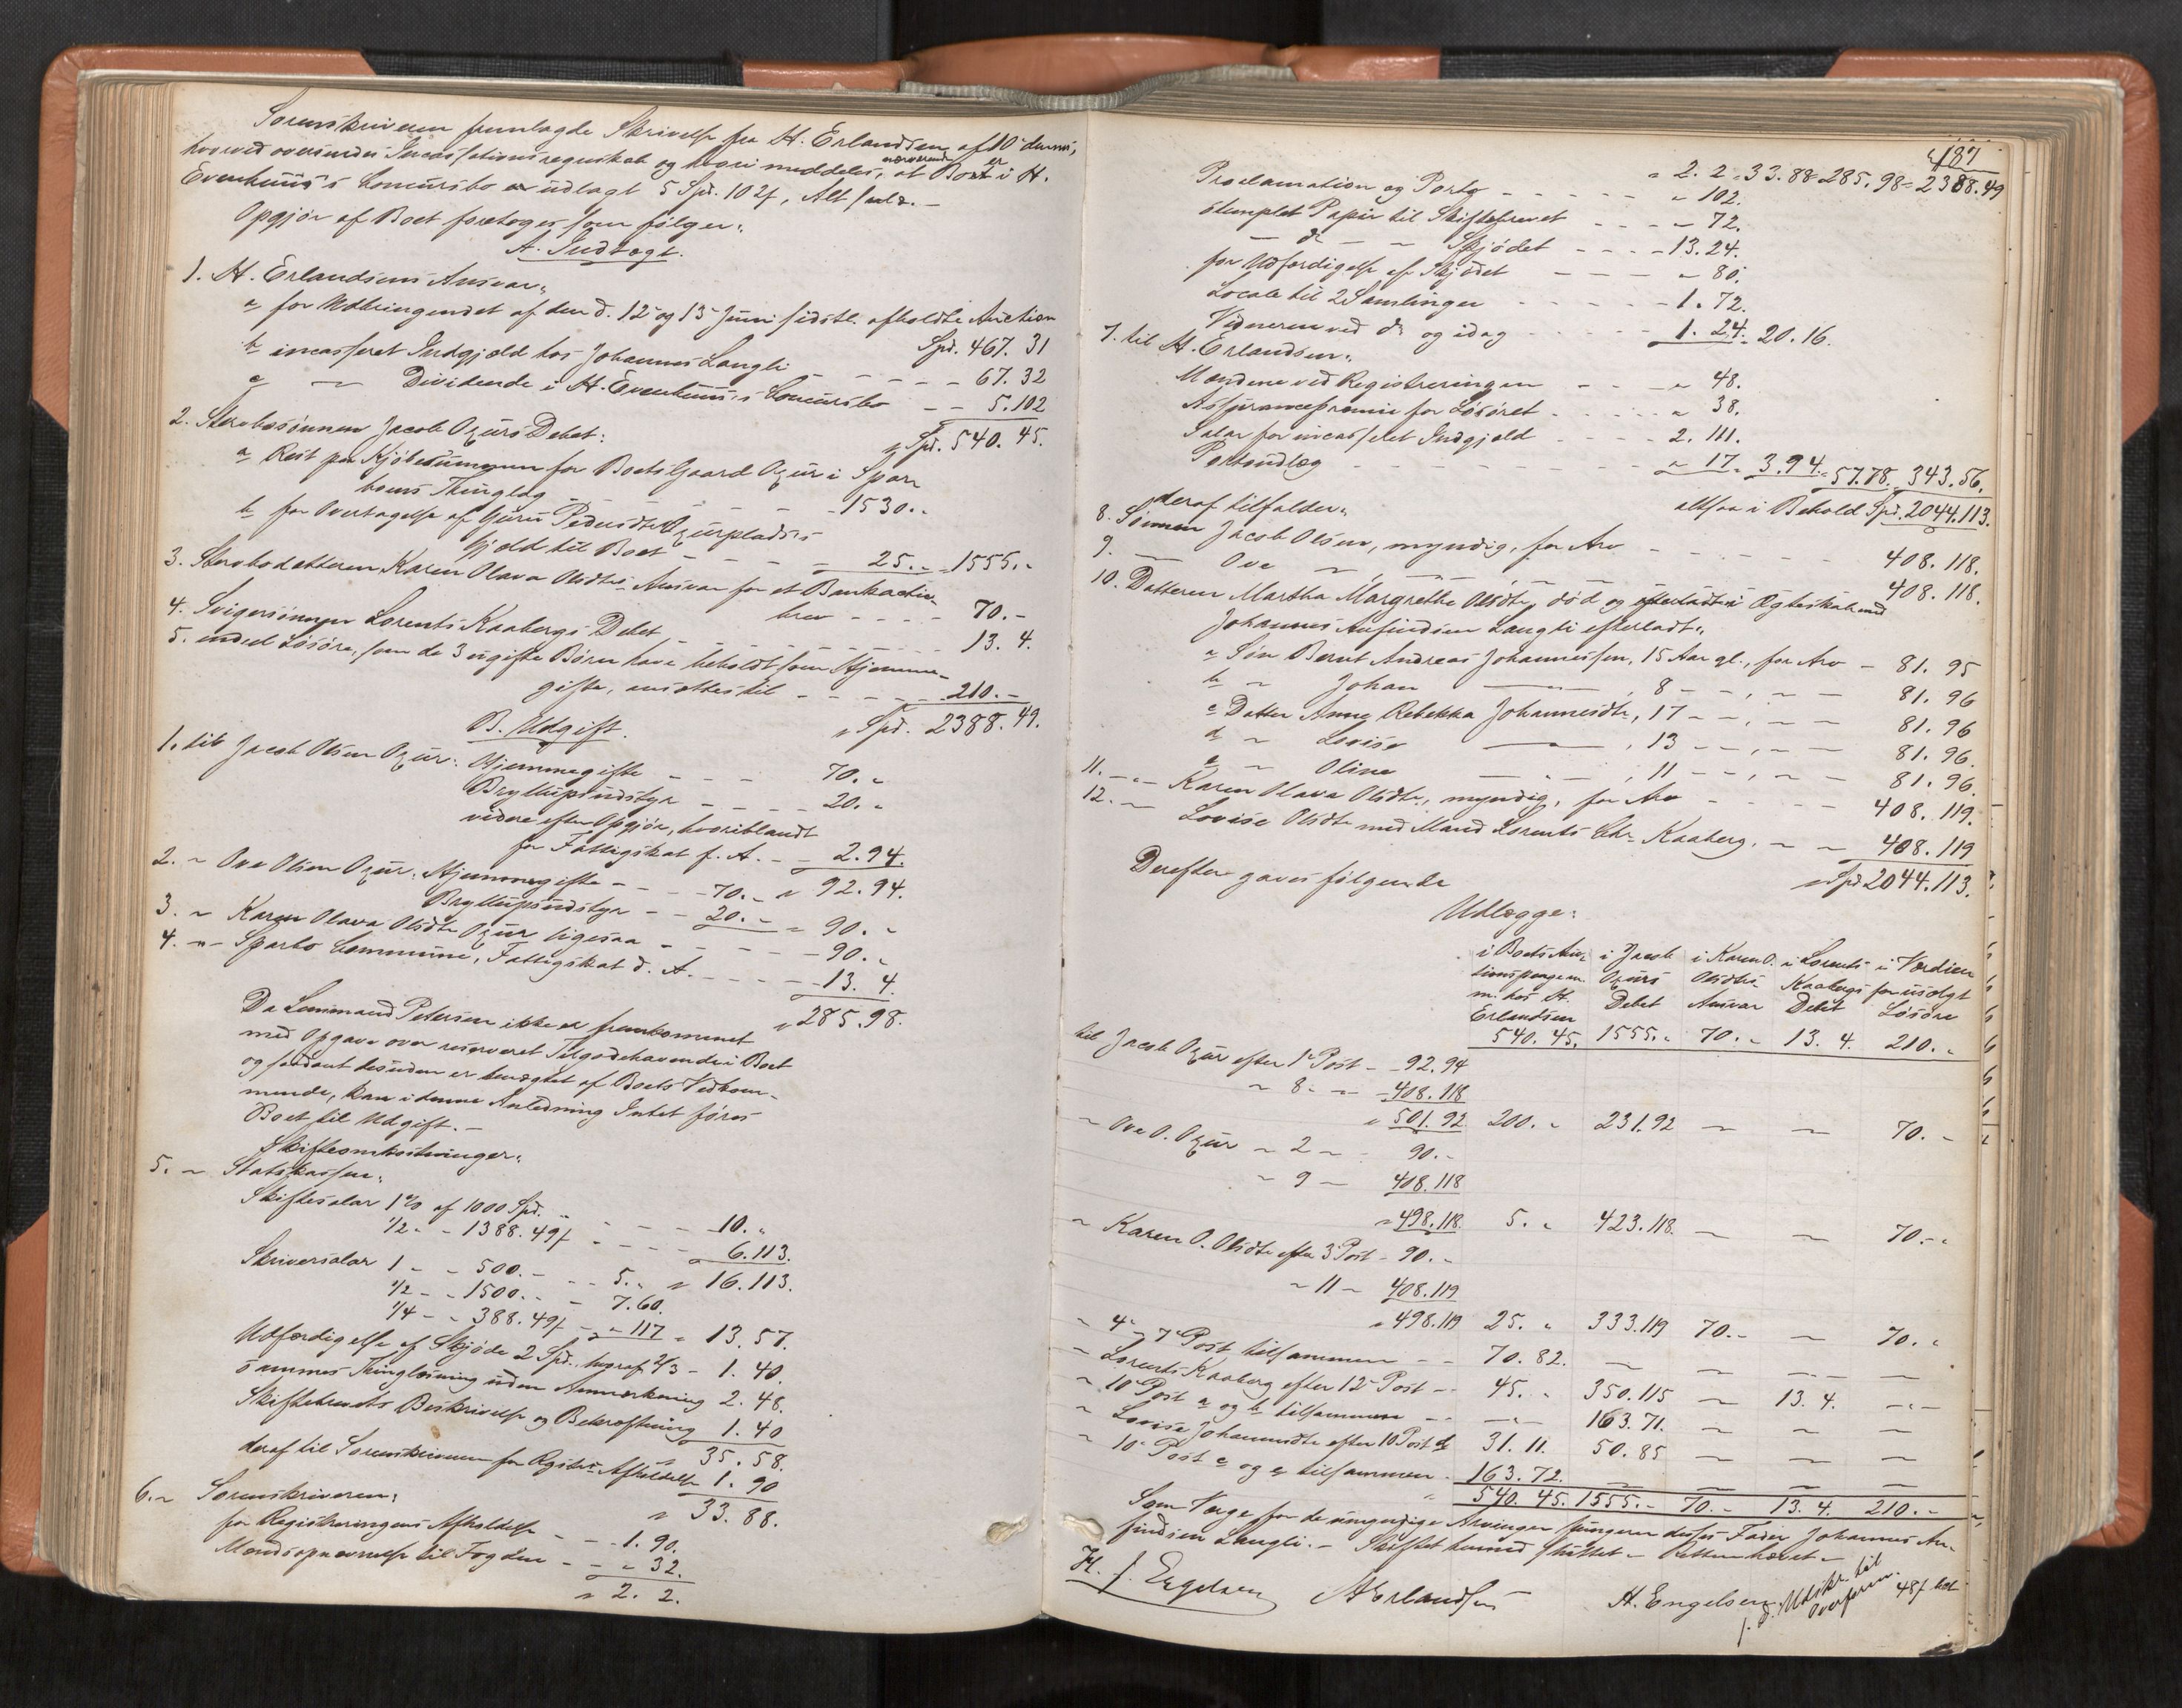 Sorenskriveren fremlagde Skrivelse fra H. Erlandsen af 10 dennes,
hvorved oversendes Incassationsregnskab og hvori meddeles, at nærværende Bo er i H.
Evenhuus's Concursbo udlagt 5 Spd. 102 s, Alt saal. –
Opgjør af Boet foretoges som følger:
A. Indtægt.
1. H. Erlandsens Ansvar:
a for Udbringendet af den d. 12 og 13 Juni sidstl. afholdte Auction
Spd. 467. 31
b incasseret Indgjæld hos Johannes Langli - - - - - 67. 32
c — Dividende i H. Evenhuus's Concursbo - - 5. 102
" Spd. 540. 45.
2. Stervbosønnen Jacob Ozurs Debet:
a Rest paa Kjøbesummen for Boets Gaard Ozur i Spar-
boens Thinglag - - - - - 1530. "
b for Overtagelse af Guru Pedersdtr Ozurplads's
Gjæld til Boet - - - - 25. " = 1555. "
3. Stervbodatteren Karen Olava Olsdtrs Ansvar for et Bankactie-
brev - - - - 70. -
4. Svigersønnen Lorents Kaabergs Debet - - - - - 13. 4.
5. endeel Løsøre, som de 3 ugifte Børn have beholdt som Hjemme-
gifte, ansættes til - - - - - 210. -
" Spd. 2388. 49.
B. Udgift.
1. til Jacob Olsen Ozur: Hjemmegifte - - - 70. "
Bryllupsudstyr - - - - 20. "
videre efter Opgjør, hvoriblandt
for Fattigskat f. A. - - 2. 94.
" 92. 94.
2. " Ove Olsen Ozur: Hjemmegifte - - - 70. "
Bryllupsudstyr - - 20. " = 90. "
3. " Karen Olava Olsdtr Ozur ligesaa - - - - - 90. "
4. " Sparbo Commune, Fattigskat d. A. - - - - 13. 4.
" 285. 98.
Da Lensmand Petersen ikke er fremkommet
med Opgave over reserveret Tilgodehavende i Boet
og saadant desuden er benægtet af Boets Vedkom-
mende, kan i denne Anledning Intet føres
Boet til Udgift. –
Skifteomkostninger:
5. " Statskassen:
Skiftesalar 1 % af 1000 Spd. - - - - 10. "
1/2 - - 1388. 49 s - - - - 6. 113.
" 16. 113.
Skriversalar 1 - - 500. - - - 5. "
1/2 - - 1500. - - 7. 60.
1/4 - - 388. 49 s - - " 117 = 13. 57.
Udfærdigelse af Skjøde 2 Spd. hvoraf 2/3 - 1. 40.
sammes Thinglæsning uden Anmærkning 2. 48.
Skiftebrevets Beskrivelse og Bekræftning 1. 40
" 35. 58.
deraf til Sorenskriveren for Registr. Afholdelse 1. 90
" 33. 88.
6. " Sorenskriveren:
for Registreringens Afholdelse - - 1. 90.
Mandsopnævnelse til Fogden - - " 32.
" 2. 2.
487
" 2. 2 = 33. 88 = 285. 98 = 2388. 49
Proclamation og Porto - - - - " 102.
stemplet Papir til Skiftebrevet - - - " 72.
— do — — Skjødet - - - - 13. 24.
for Udfærdigelse af Skjødet - - - " 80.
Locale til 2 Samlinger - - - - - 1. 72.
Vidnerne ved do og idag - - - - 1. 24. = 20. 16.
7. til H. Erlandsen:
Mændene ved Registreringen - - - " 48.
Assurancepræmie for Løsøret - - - - " 38.
Salar for incasseret Indgjæld - - - - 2. 111.
Portoudlæg - - - - - - " 17. = 3. 94. = 57. 78. 343. 56.
altsaa i Behold Spd. 2044. 113.
deraf tilfalder:
8. Sønnen Jacob Olsen, myndig, for Arv - - - - - 408. 118.
9. — Ove — , — — - - - 408. 118.
10. Datteren Martha Margrethe Olsdtr, død og efterladt i Ægteskab med
Johannes Anfindsen Langli efterladt:
a Søn Bernt Andreas Johannessen, 15 Aar gl., for Arv - 81. 95
b " Johan — , 8 - - , - - 81. 96
c Datter Anne Rebekka Johannesdtr, 17 - - , - - 81. 96
d " Lovise — , 13 - - , - - 81. 96.
e " Oline — , 11 - - , - - 81. 96.
11. - - Karen Olava Olsdtr, myndig, for Arv - - - - 408. 119.
12. - Lovise Olsdtr med Mand Lorents Chr. Kaaberg, - - 408. 119
" Spd 2044. 113.
Derefter gaves følgende
Udlægge:
i Boets Auc- i Jacob i Karen O. i Lorents i Værdien
tionspenge m. Ozurs Olsdtrs Kaabergs for usolgt
m. hos H. Debet Ansvar Debet Løsøre
Erlandsen
540. 45. 1555. " 70. " 13. 4. 210. "
til Jacob Ozur efter 1e Post - - 92. 94
" 8 - - - 408. 118
" 501. 92 200. " 231. 92 — — 70. -
" Ove O. Ozur " 2 " - 90. -
" 9 — 408. 118
" 498. 118. 5. " 423. 118. — — 70. -
" Karen O. Olsdtr efter 3 Post - 90. -
" 11 - 408. 119
" 498. 119 25. " 333. 119 70. - — 70. "
" 4e og 7e Post tilsammen - - 70. 82. — — — —
" Lorents Kaaberg efter 12e Post - - 45. " 350. 115 — 13. 4. —
" 10e Post a og b tilsammen - - — 163. 71. — — —
" Lovise Johannesdtr efter 10 Post d 31. 11. 50. 85 — — —
" 10e Post c og e tilsammen - 163. 72. — — — —
" 540. 45. 1555. - 70. - 13. 4. 210. -
Som Værge for de umyndige Arvinger fungerer deres Fader Johannes An-
findsen Langli. – Skiftet hermed sluttet – Retten hævet –
H. J. Engelsen HErlandsen H. Engelsen
f. d. Udskr. til
Overform. 48 s bet